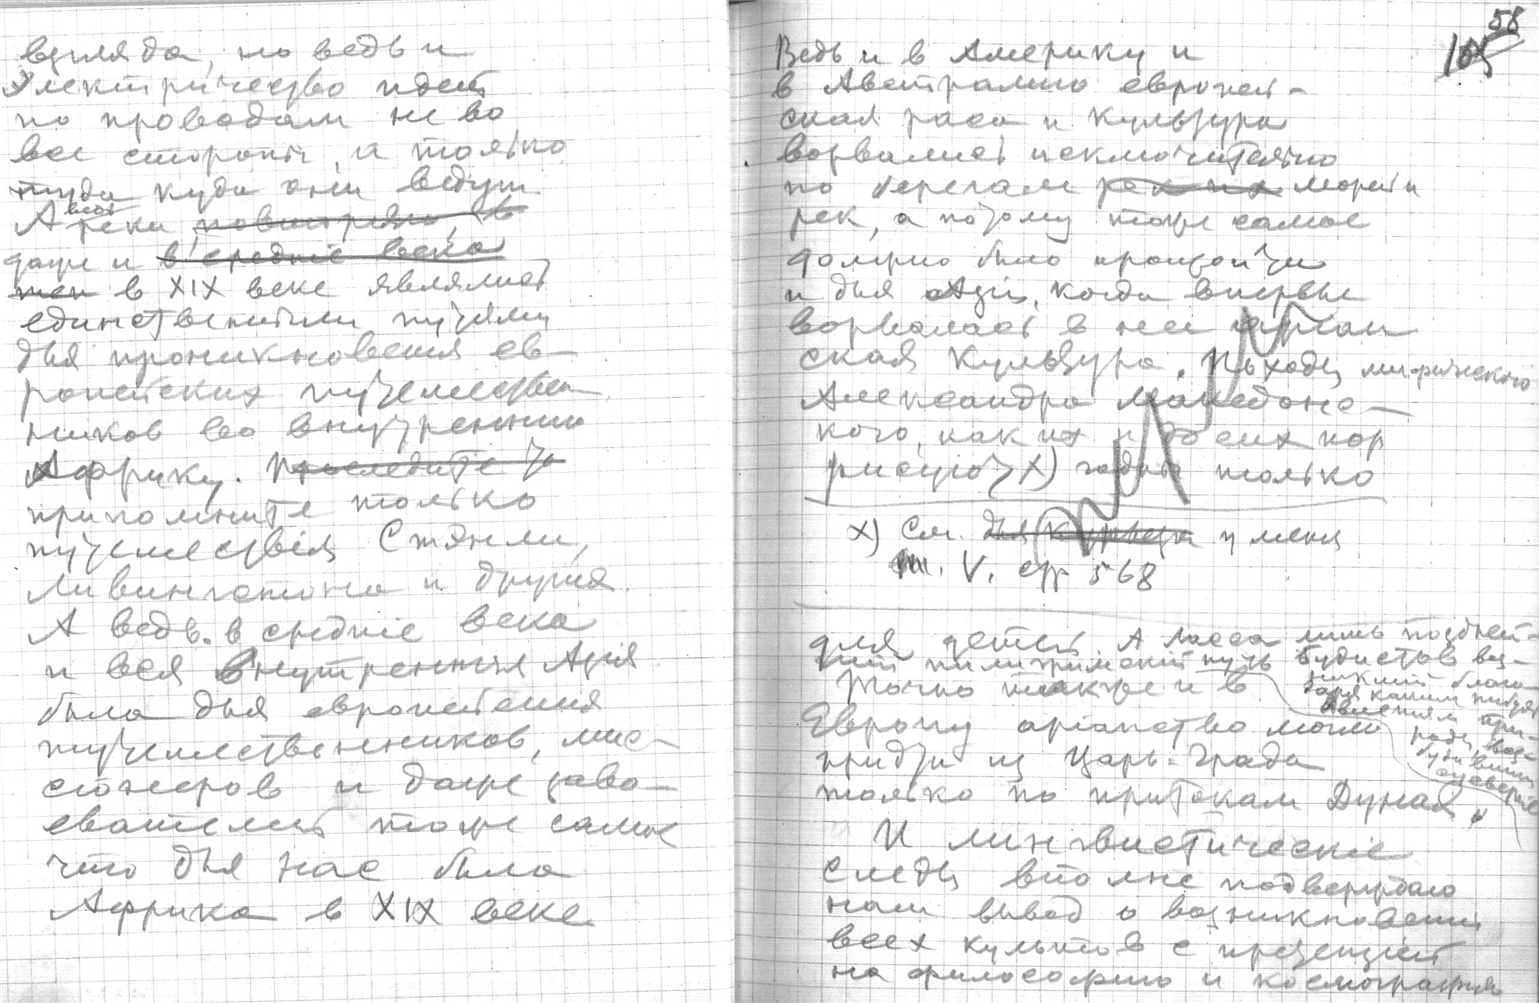 взгляда, но ведь и
электричество идет
по проводам не во
все стороны, а только
туда куда они ведут
А ведь реки повсюду, (в
даже и в средніе века
тен в XIX веке являлись
единственными путями
для проникновения ев-
ропейских путешествен
ников во внутреннюю
Африку. Проследите
припомните только
путешествія Стэнли,
Ливингстона и другия.
А ведь в средніе века
и вся Внутренняя Азія
была для европейских
путешественников, мис-
сіонеров и даже заво-
евателей тоже самое
что для нас была
Африка в XIX веке
58
105
Ведь и в Америку и
в Австралию европей-
ская раса и культура
ворвались исключительно
по берегам рек их морей и
рек, а потому тоже самое
должно было произойти
и для Азіи, когда впервые
ворвалась в нее арійская
ская культура. Походы мифического
Александра Македонс-
кого, как их и до сих пор
рисуют х) годны только
х) См. для у меня
т. V. стр 568
для детей. А Лхасса лишь позднейший
пилигримский путь буддистов воз-
никший благо
даря каким нибудь
явлениям при-
роды, воз-
будившим
суеверие
Точно также и в
Европу аріанство могло
придти из Царь-Града
только по притокам Дуная,
И лингвистическіе
следы вполне подтверждают
наш вывод о возникновении
всех культов с претензіей
на философию и космографию